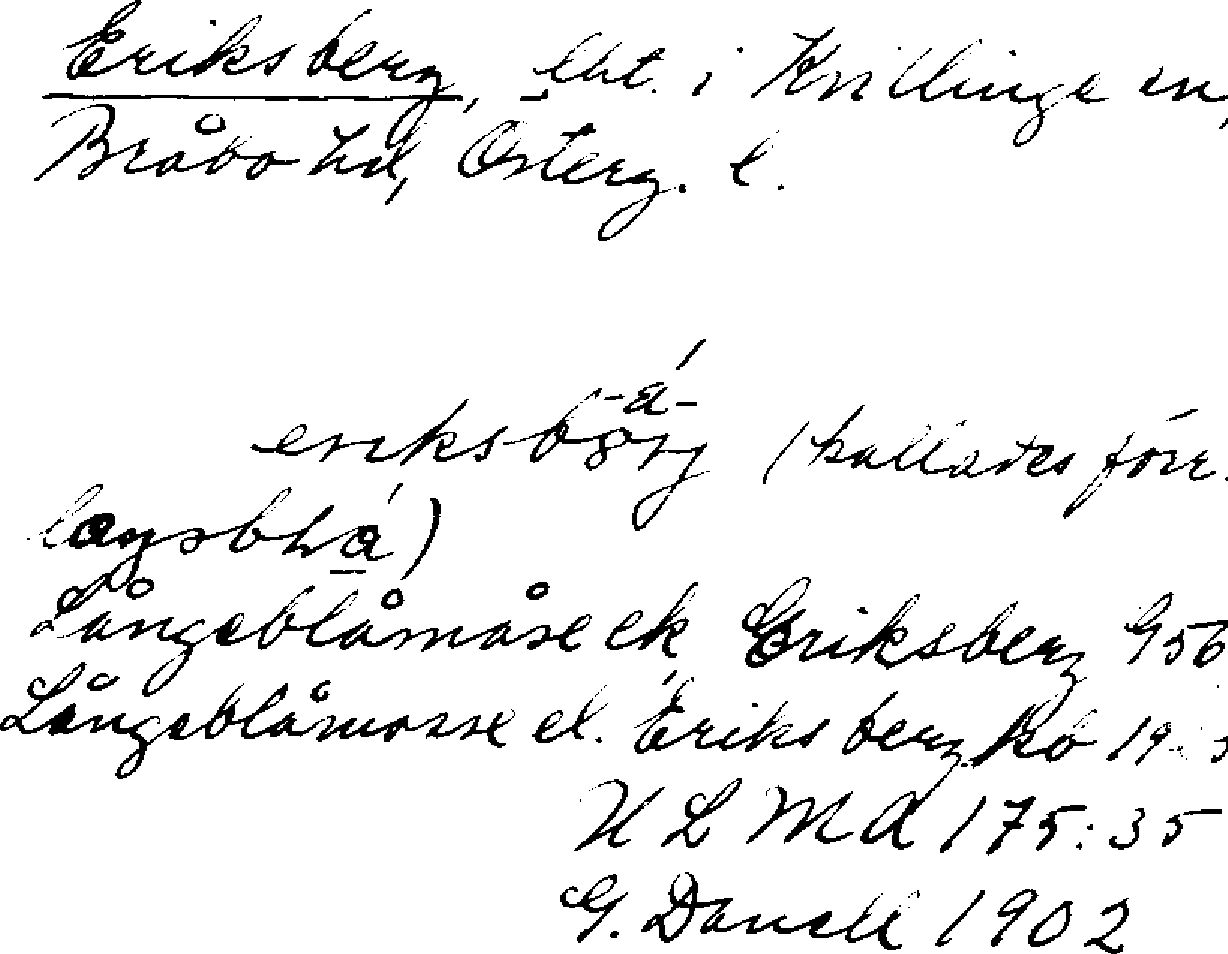 Eriksberg, lht. i Kvillinge sn,
Bråbo hd, Österg. l.
-á-
eriksbärj (kallades förr.
Långsblåmåse ek, Eriksberg G56
Långsblåmosse el. Eriksberg kb 19
ULMA 175:35
G. Danell 1902